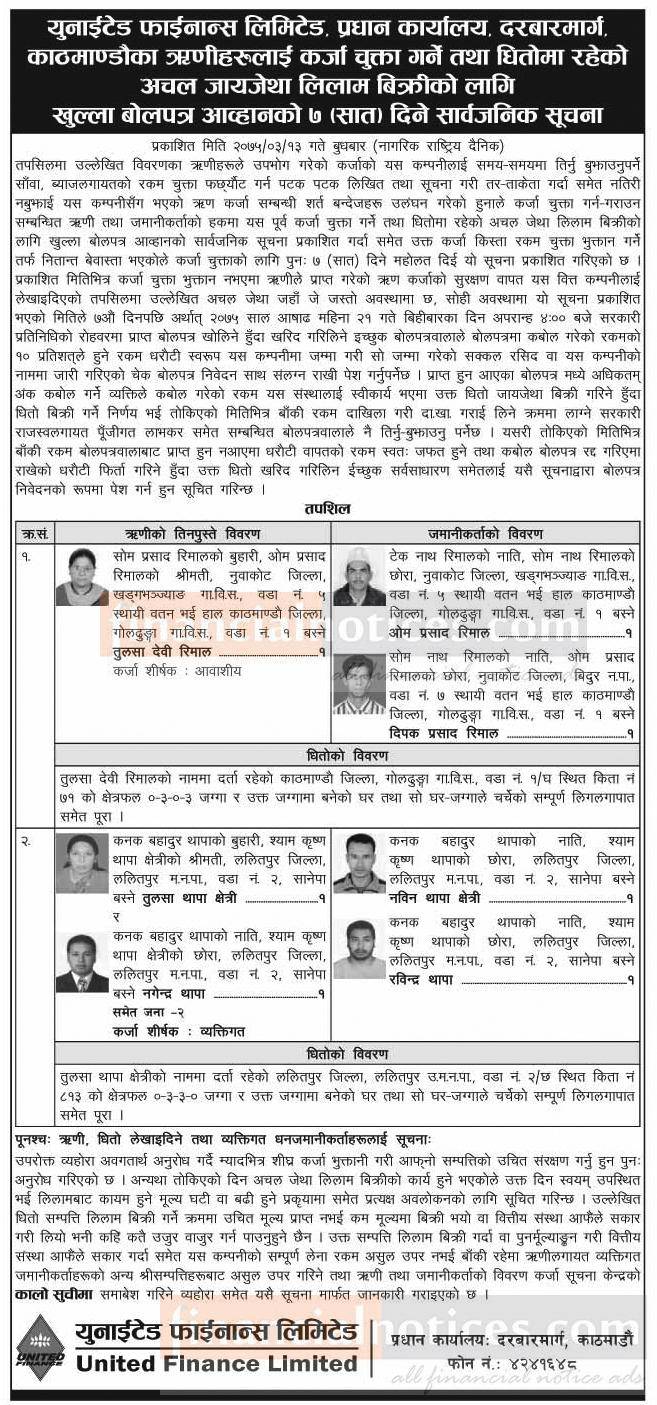 युनाईटेड फाईनान्स लिमिटेड, प्रधान कार्यालय, दरबारमार्ग,
काठमाण्डौका ऋणीहरुलाई कर्जा चुक्ता गर्ने तथा धितोमा रहेको
अचल जायजेथा लिलाम बिक्रीको लागि
खुल्ला बोलपत्र आव्हानको ७ (सात) दिने सार्वजनिक सूचना
प्रकाशित मिति २०७५/०३/१३ गते बुधबार (नागरिक राष्ट्रिय दैनिक)
तपसिलमा उल्लेखित विवरणका ऋणीहरूले उपभोग गरेको कर्जाको यस कम्पनीलाई समय-समयमा तिर्नु बुझाउनुपर्ने
साँवा, ब्याजलगायतको रकम चुक्ता फर्छ्यौट गर्न पटक पटक लिखित तथा सूचना गरी तर-ताकेता गर्दा समेत नतिरी
नबुझाई यस कम्पनीसँग भएको ऋण कर्जा सम्बन्धी शर्त बन्देजहरू उलंघन गरेको हुनाले कर्जा चुक्ता गर्न-गराउन
सम्बन्धित ऋणी तथा जमानीकर्ताको हकमा यस पूर्व कर्जा चुक्ता गर्ने तथा धितोमा रहेको अचल जेथा लिलाम बिक्रीको
लागि खुल्ला बोलपत्र आव्हानको सार्वजनिक सूचना प्रकाशित गर्दा समेत उक्त कर्जा किस्ता रकम चुक्ता भुक्तान गर्ने
तर्फ नितान्त बेवास्ता भएकोले कर्जा चुक्ताको लागि पुनः ७ (सात) दिने म्होलत दिई यो सूचना प्रकाशित गरिएको छ ।
प्रकाशित मितिभित्र कर्जा चुक्ता भुक्तान नभएमा ऋणीले प्राप्त गरेको ऋण कर्जाको सुरक्षण वापत यस वित्त कम्पनीलाई
लेखाइदिएको तपसिलमा उल्लेखित अचल जेथा जहाँ जे जस्तो अवस्थामा छ, सोही अवस्थामा यो सूचना प्रकाशित
भएको मितिले ७औं दिनपछि अर्थात् २०७५ साल आषाढ महिना २१ गते बिहीबारका दिन अपरान्ह ४:०० बजे सरकारी
प्रतिनिधिको रोहवरमा प्राप्त बोलपत्र खोलिने हुँदा खरिद गरिलिने इच्छुक बोलपत्रवालाले बोलपत्रमा कबोल गरेको रकमको
१० प्रतिशतले हुने रकम धरौटी स्वरूप यस कम्पनीमा जम्मा गरी सो जम्मा गरेको सक्कल रसिद वा यस कम्पनीको
नाममा जारी गरिएको चेक बोलपत्र निवेदन साथ संलग्न राखी पेश गर्नुपर्नेछ । प्राप्त हुन आएका बोलपत्र मध्ये अधिकतम्
अंक कबोल गर्ने व्यक्तिले कबोल गरेको रकम यस संस्थालाई स्वीकार्य भएमा उक्त धितो जायजेथा बिक्री गरिने हुँदा
धितो बिक्री गर्ने निर्णय भई तोकिएको मितिभित्र बाँकी रकम दाखिला गरी दा.खा. गराई लिने क्रममा लाग्ने सरकारी
राजस्वलगायत पूँजीगत लाभकर समेत सम्बन्धित बोलपत्रवालाले नै तिर्नु-बुझाउनु पर्नेछ । यसरी तोकिएको मितिभित्र
बाँकी रकम बोलपत्रवालाबाट प्राप्त हुन नआएमा धरौटी वापतको रकम स्वतः जफत हुने तथा कबोल बोलपत्र रद्द गरिएमा
राखेको धरौटी फिर्ता गरिने हुँदा उक्त धितो खरिद गरिलिन ईच्छुक सर्वसाधारण समेतलाई यसै सूचनाद्वारा बोलपत्र
निवेदनको रूपमा पेश गर्न हुन सूचित गरिन्छ ।
तपशिल
क्र.सं. ऋणीको तिनपुस्ते विवरण जमानीकर्ताको विवरण
१.
सोम प्रसाद रिमालको बुहारी, ओम प्रसाद
रिमालको श्रीमती, नुवाकोट जिल्ला,
खड्गभञ्ज्याङ गा.वि.स., वडा नं. ५
स्थायी वतन भई हाल काठमाण्डौ जिल्ला,
गोलढुङ्गा गा.वि.स., वडा नं. १ बस्ने
तुलसा देवी रिमाल ..........१
कर्जा शीर्षक : आवाशीय
टेक नाथ रिमालको नाति, सोम नाथ रिमालको
छोरा, नुवाकोट जिल्ला, खड्गभञ्ज्याङ गा.वि.स.,
वडा नं. ५ स्थायी वतन भई हाल काठमाण्डौ
जिल्ला, गोलढुङ्गा गा.वि.स., वडा नं. १ बस्ने
ओम प्रसाद रिमाल ..........१
सोम नाथ रिमालको नाति, ओम प्रसाद
रिमालको छोरा, नुवाकोट जिल्ला, बिदुर न.पा.,
वडा नं. ७ स्थायी वतन भई हाल काठमाण्डौ
जिल्ला, गोलढुङ्गा गा.वि.स., वडा नं. १ बस्ने
दिपक प्रसाद रिमाल ..........१
धितोको विवरण
तुलसा देवी रिमालको नाममा दर्ता रहेको काठमाण्डौ जिल्ला, गोलढुङ्गा गा.वि.स., वडा नं. १/घ स्थित किता नं
७१ को क्षेत्रफल ०-३-०-३ जग्गा र उक्त जग्गामा बनेको घर तथा सो घर-जग्गाले चर्चेको सम्पूर्ण लिगलगापात
समेत पूरा ।
२.
कनक बहादुर थापाको बुहारी, श्याम कृष्ण
थापा क्षेत्रीको श्रीमती, ललितपुर जिल्ला,
ललितपुर म.न.पा., वडा नं. २, सानेपा
बस्ने तुलसा थापा क्षेत्री ..........१
र
कनक बहादुर थापाको नाति, श्याम कृष्ण
थापा क्षेत्रीको छोरा, ललितपुर जिल्ला,
ललितपुर म.न.पा., वडा नं. २, सानेपा
बस्ने नगेन्द्र थापा ..........१
समेत जना -२
कर्जा शीर्षक : व्यक्तिगत
कनक बहादुर थापाको नाति, श्याम
कृष्ण थापाको छोरा, ललितपुर जिल्ला,
ललितपुर म.न.पा., वडा नं. २, सानेपा बस्ने
नविन थापा क्षेत्री ..........१
कनक बहादुर थापाको नाति, श्याम
कृष्ण थापाको छोरा, ललितपुर जिल्ला,
ललितपुर म.न.पा., वडा नं. २, सानेपा बस्ने
रविन्द्र थापा ..........१
धितोको विवरण
तुलसा थापा क्षेत्रीको नाममा दर्ता रहेको ललितपुर जिल्ला, ललितपुर उ.म.न.पा., वडा नं. २/छ स्थित किता नं
८१३ को क्षेत्रफल ०-३-३-० जग्गा र उक्त जग्गामा बनेको घर तथा सो घर-जग्गाले चर्चेको सम्पूर्ण लिगलगापात
समेत पूरा ।
पूनश्चः ऋणी, धितो लेखाइदिने तथा व्यक्तिगत धनजमानीकर्ताहरूलाई सूचनाः
उपरोक्त व्यहोरा अवगतार्थ अनुरोध गर्दै म्यादभित्र शीघ्र कर्जा भुक्तानी गरी आफ्नो सम्पत्तिको उचित संरक्षण गर्नु हुन पुनः
अनुरोध गरिएको छ । अन्यथा तोकिएको दिन अचल जेथा लिलाम बिक्रीको कार्य हुने भएकोले उक्त दिन स्वयम् उपस्थित
भई लिलामबाट कायम हुने मूल्य घटी वा बढी हुने प्रकृयामा समेत प्रत्यक्ष अवलोकनको लागि सूचित गरिन्छ । उल्लेखित
धितो सम्पत्ति लिलाम बिक्री गर्ने क्रममा उचित मूल्य प्राप्त नभई कम मूल्यमा बिक्री भयो वा वित्तीय संस्था आफैले सकार
गरी लियो भनी कहिं कतै उजुर वाजुर गर्न पाउनुहुने छैन । उक्त सम्पत्ति लिलाम बिक्री गर्दा वा पुनर्मूल्याङ्कन गरी वित्तीय
संस्था आफैले सकार गर्दा समेत यस कम्पनीको सम्पूर्ण लेना रकम असुल उपर नभई बाँकी रहेमा ऋणीलगायत व्यक्तिगत
जमानीकर्ताहरूको अन्य श्रीसम्पत्तिहरूबाट असुल उपर गरिने तथा ऋणी तथा जमानीकर्ताको विवरण कर्जा सूचना केन्द्रको
कालो सुचीमा समाबेश गरिने व्यहोरा समेत यसै सूचना मार्फत जानकारी गराइएको छ ।
UNITED FINANCE
युनाईटेड फाईनान्स लिमिटेड
United Finance Limited
प्रधान कार्यालय: दरबारमार्ग, काठमाडौं
फोन नं.: ४२४१६४८
financialnotices.com
all financial notice ads
financialnotices.com
all financial notice ads